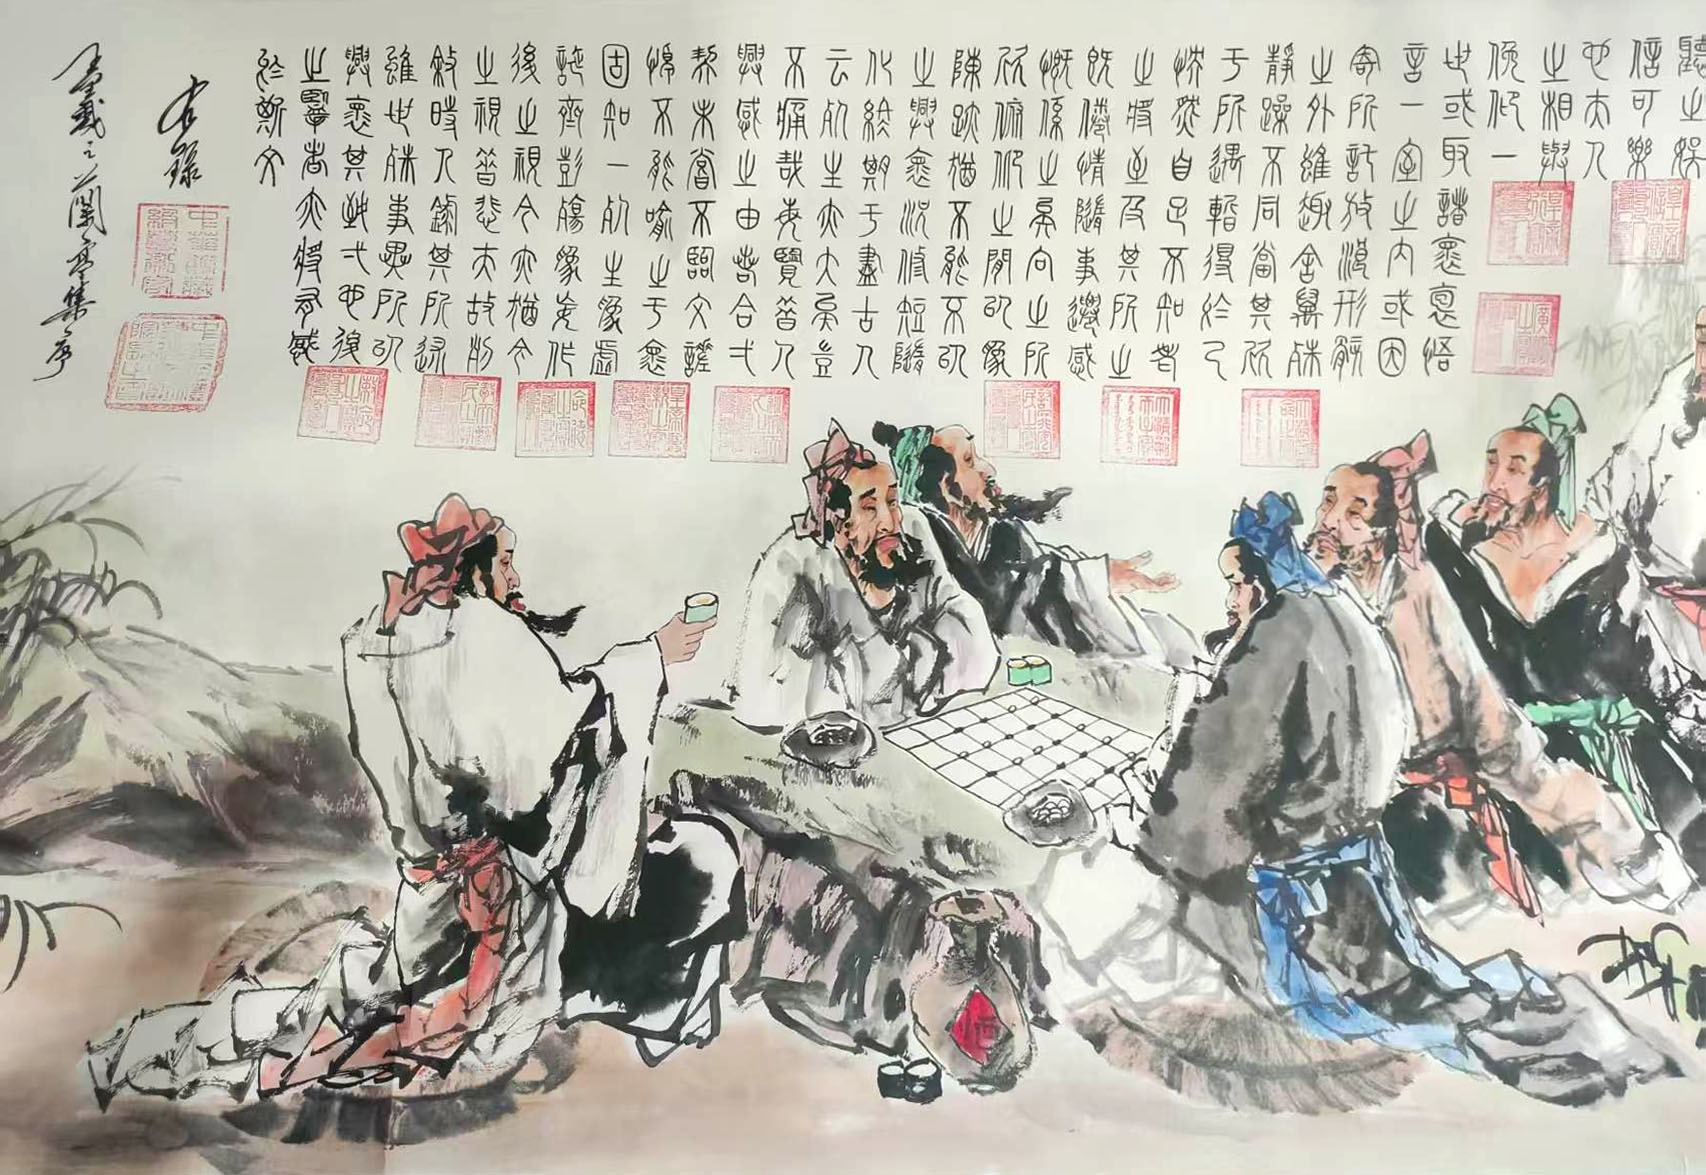 聽之娛
信可樂
也夫人
之相與
俛仰一
世或取諸懷抱悟
言一室之內或因
寄所託放浪形骸
之外雖趣舍萬殊
靜躁不同當其欣
于所遇暫得於己
怏然自足不知老
之將至及其所之
既倦情隨事遷感
慨係之矣向之所
欣俯仰之閒以為
陳跡猶不能不以
之興懷況修短隨
化終期于盡古人
云死生亦大矣豈
不痛哉每覽昔人
興感之由若合一
契未嘗不臨文嗟
悼不能喻之于懷
固知一死生為虛
誕齊彭殤為妄作
後之視今亦猶今
之視昔悲夫故列
敘時人錄其所述
雖世殊事異所以
興懷其致一也後
之覽者亦將有感
於斯文
右錄
王羲之蘭亭集序
酒